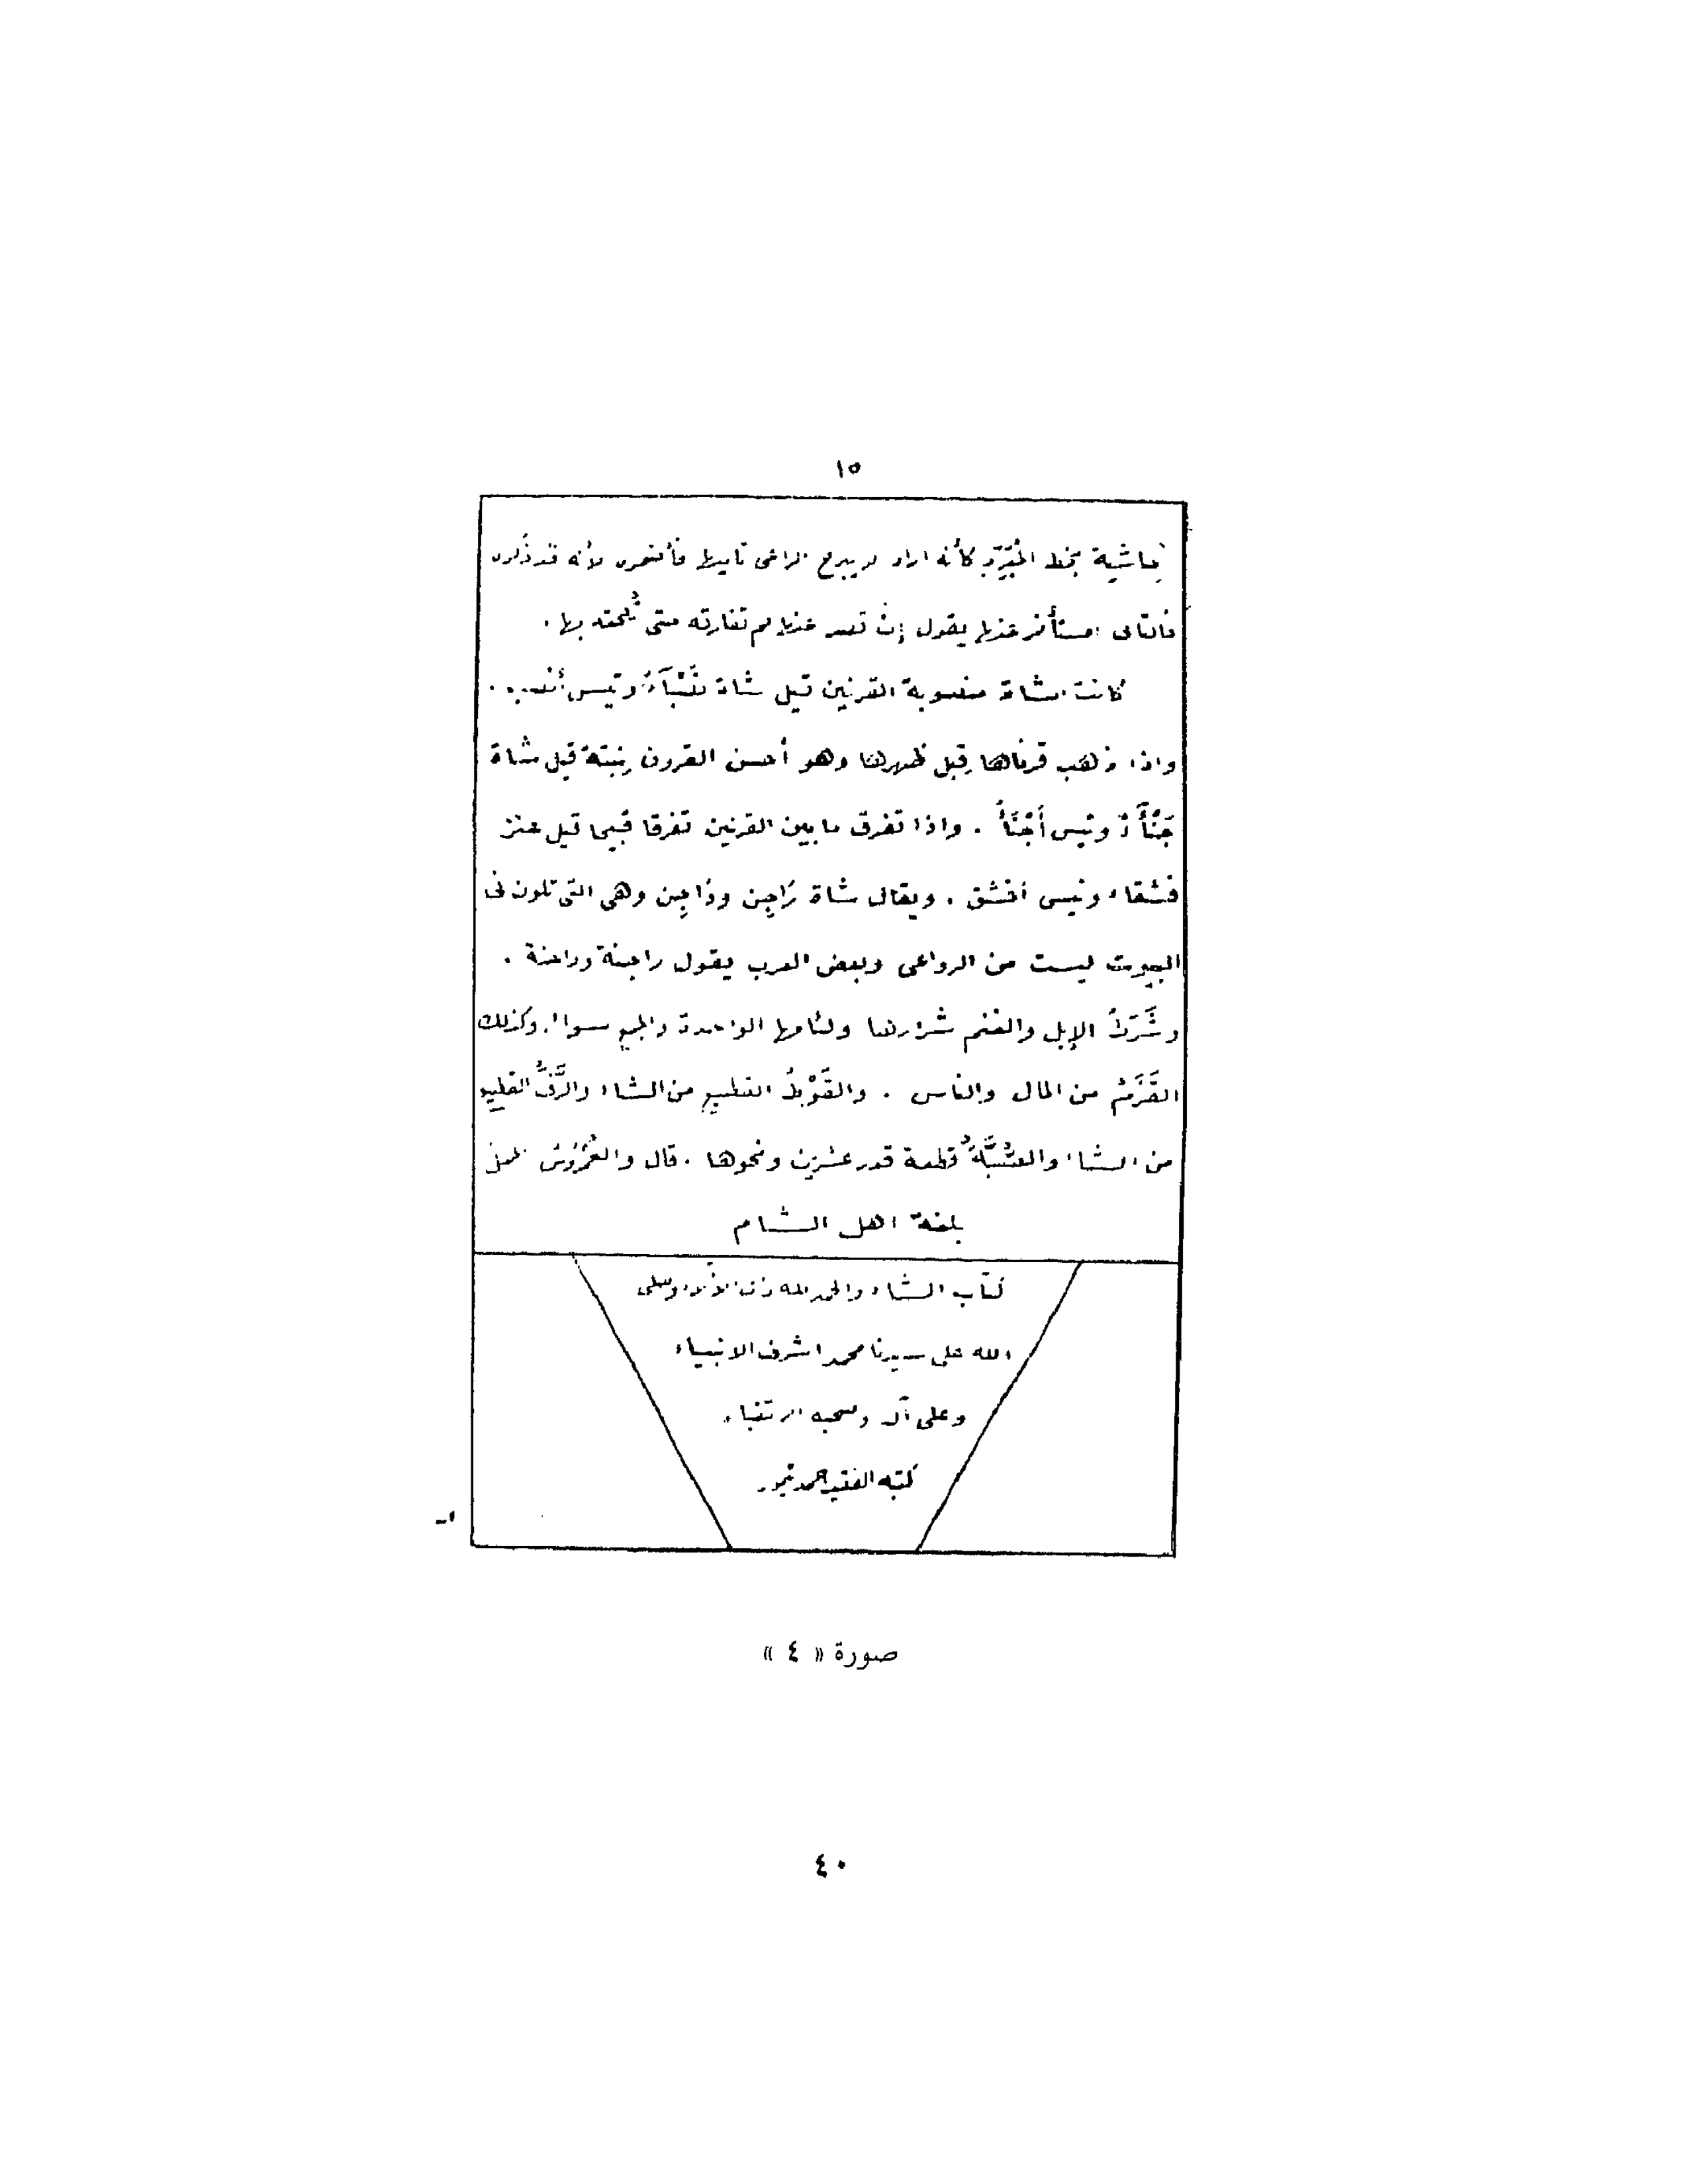 ١٥
حاشية بخط المُبَرِّد كأنه اراد لا يبرح الراعى تابعها فأختصر لأنه قد ذكره
فالتالى المستأخر عنها يقول إن قصر عنها لم تفارقه حتى يُلحقه بها .
كانت الشاة منصوبة القرنين قيل شاة نَصْبَآءُ وتيس أنصب .
واذا ذهب قرناها قِبل ظهرها وهو أحسن القرون نِبتةً قيل شاة
جَنْآَءُ وتيس أَجْنَأُ . واذا تفرق ما بين القرنين تفرقا قبيحا قيل عنز
فشقاء وتيس أفشق . ويقال شاة رَاجِن ودَاجِن وهى التى تكون فى
البيوت ليست من الرواعى وبعض العرب يقول راجنة وداجنة .
وشَرَطُ الإبل والغنم شرارها ولئامها الواحدة والجمع سواء . وكذلك
القَزَمُ من المال والناس . والقَوْطُ القطيع من الشاء والرَّفُّ القطيع
من الشاء والقطعة قدر عشرين ونحوها . قال والعُمْرُوسُ الحمل
بلغة اهل الشام
كتاب الشاء والحمد لله وصلى
الله على سيدنا محمد اشرف الانبياء
وعلى آله وصحبه الاتقياء
كتبه الفقير احمد تيمور
صورة « ٤ »
٤٠